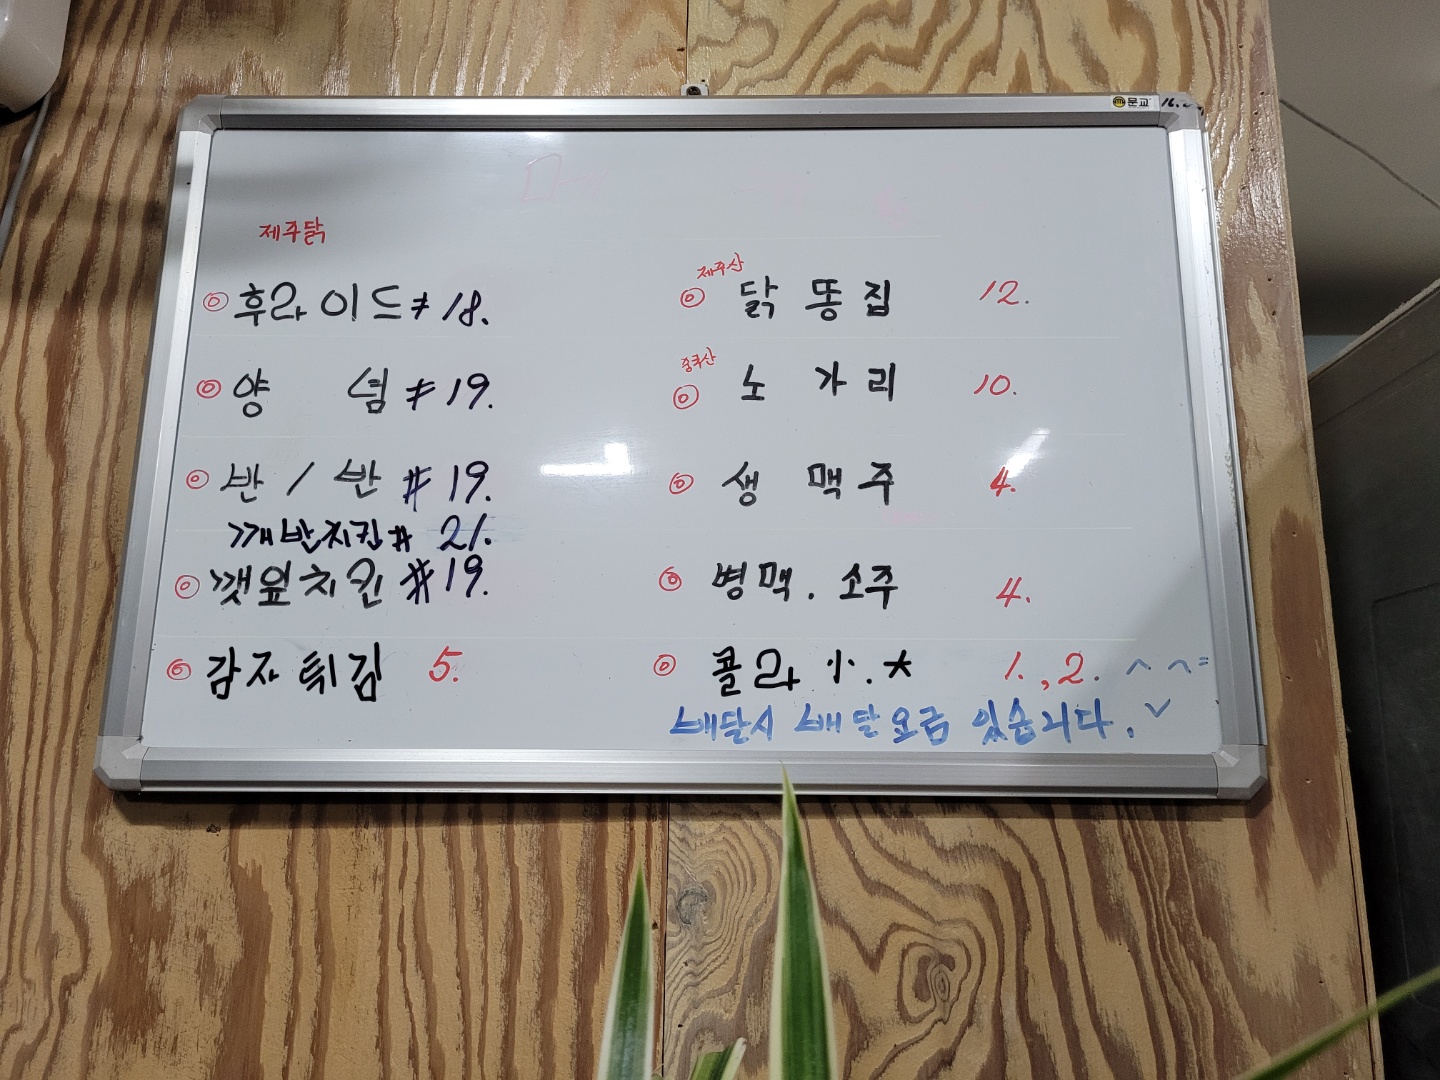 문교
제주닭
◎ 후라이드 # 18.
◎ 양 념 # 19.
◎ 반 / 반 # 19.
깨반치킨 # 21.
◎ 깻잎치킨 # 19.
◎ 감자튀김 5.
제주산
◎ 닭 똥 집 12.
중국산
◎ 노 가 리 10.
◎ 생 맥주 4.
◎ 병맥. 소주 4.
◎ 콜라 小.大 1.,2. ^ ^=
배달시 배달요금 있습니다.